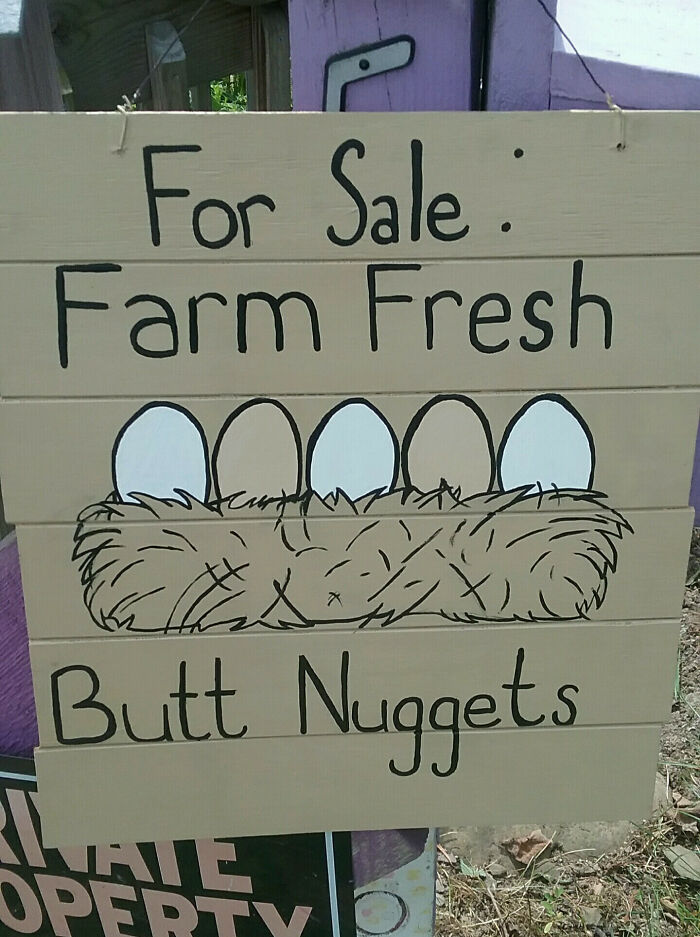 For Sale:
Farm Fresh
Butt Nuggets
PRIVATE
PROPERTY